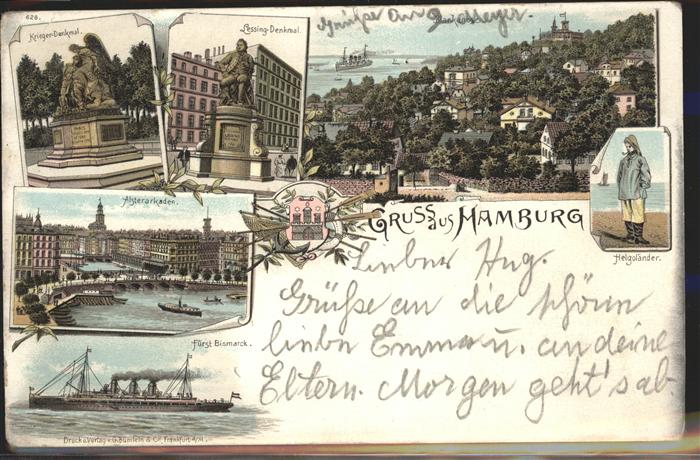 628.
Krieger-Denkmal.
Lessing-Denkmal.
Grüße an
Alsterarkaden.
GRUSS aus HAMBURG
Helgoländer.
Lieber Hug.
Grüße an die schöne
liebe Emma u. an deine
Eltern. Morgen geht's ab.
Fürst Bismarck.
Druck u. Verlag v. G. Blümlein & Co. Frankfurt a/M.